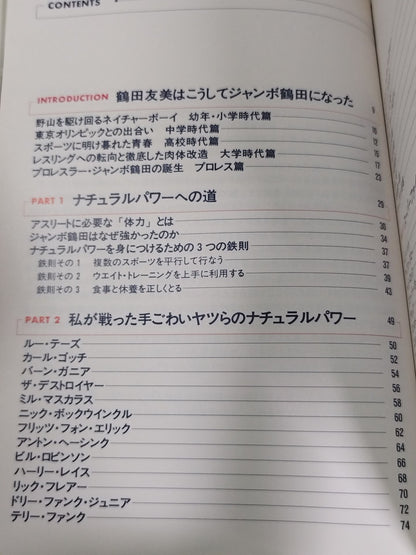 CONTENTS
INTRODUCTION 鶴田友美はこうしてジャンボ鶴田になった 9
野山を駆け回るネイチャーボーイ 幼年・小学時代篇 10
東京オリンピックとの出合い 中学時代篇 12
スポーツに明け暮れた青春 高校時代篇 15
レスリングへの転向と徹底した肉体改造 大学時代篇 17
プロレスラー・ジャンボ鶴田の誕生 プロレス篇 23
PART 1 ナチュラルパワーへの道 29
アスリートに必要な「体力」とは 30
ジャンボ鶴田はなぜ強かったのか 34
ナチュラルパワーを身につけるための3つの鉄則 37
鉄則その1 複数のスポーツを平行して行なう 37
鉄則その2 ウエイト・トレーニングを上手に利用する 39
鉄則その3 食事と休養を正しくとる 43
PART 2 私が戦った手ごわいヤツらのナチュラルパワー 49
ルー・テーズ 50
カール・ゴッチ 52
バーン・ガニア 54
ザ・デストロイヤー 56
ミル・マスカラス 58
ニック・ボックウインクル 60
フリッツ・フォン・エリック 62
アントン・ヘーシンク 64
ビル・ロビンソン 66
ハーリー・レイス 68
リック・フレアー 70
ドリー・ファンク・ジュニア 72
テリー・ファンク 74